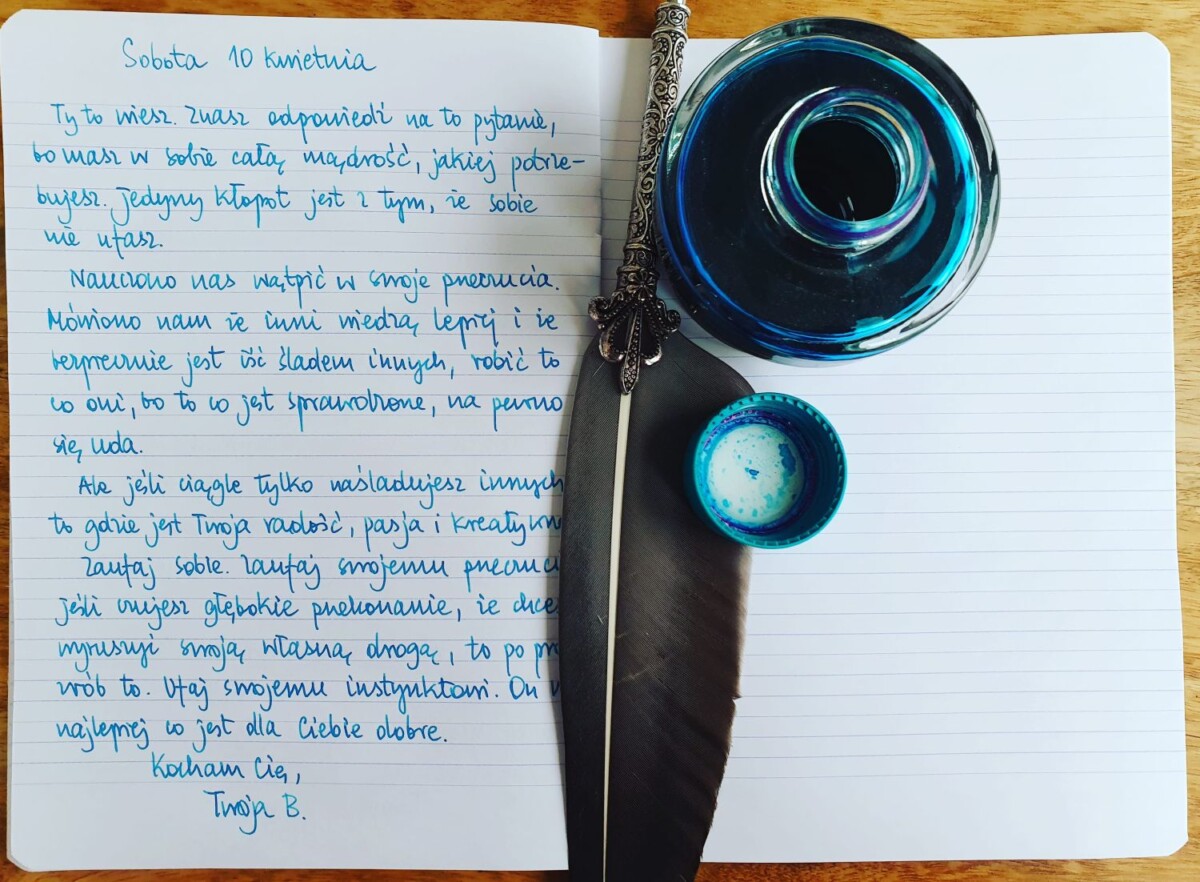 Sobota 10 kwietnia
Ty to wiesz. Znasz odpowiedź na to pytanie,
bo masz w sobie całą mądrość, jakiej potrze-
bujesz. Jedyny kłopot jest z tym, że sobie
nie ufasz.
Nauczono nas wątpić w swoje przeczucia.
Mówiono nam że inni wiedzą lepiej i że
bezpiecznie jest iść śladem innych, robić to
co oni, bo to co jest sprawdzone, na pewno
się uda.
Ale jeśli ciągle tylko naśladujesz innych
to gdzie jest Twoja radość, pasja i kreatywn
Zaufaj sobie. Zaufaj swojemu przeczuci
jeśli czujesz głębokie przekonanie, że chce
wyruszyć swoją własną drogą, to po pro
zrób to. Ufaj swojemu instynktowi. On w
najlepiej co jest dla Ciebie dobre.
Kocham Cię,
Twoja B.